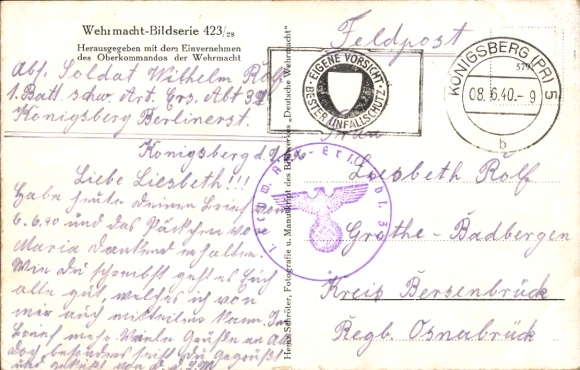 Wehrmacht-Bildserie 423/28
Herausgegeben mit dem Einvernehmen
des Oberkommandos der Wehrmacht
Abs. Soldat Wilhelm Rolf
1. Batt. schw. Art. Ers. Abt 37
Königsberg Berlinerst.
Königsberg d.
Liebe Liesbeth!!!
Habe heute deinen Brief vom
6.6.40 und das Päckchen von
Maria dankend erhalten.
Wie du schreibst geht es Euch
alle gut, welches ich von
mir auch mitteilen kann. Im
Brief mehr. Viele Grüße an alle
doch besonders seist du gegrüßt
und geküßt von d.
Heinz Schröter, Fotografie u. Manuskript des Bildwerkes „Deutsche Wehrmacht"
Feldpost
EIGENE VORSICHT
BESTER UNFALLSCHUTZ
KÖNIGSBERG (PR) 5
08.6.40.-9
b
579
Frau
Liesbeth Rolf
Grothe-Badbergen
Kreis Bersenbrück
Regb. Osnabrück